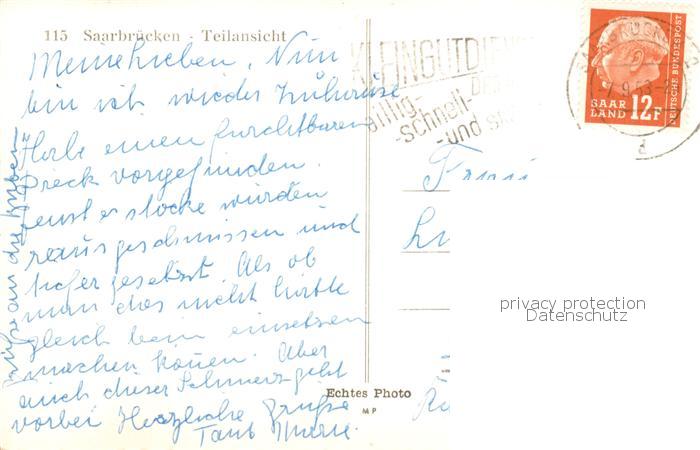 115 Saarbrücken - Teilansicht
Meine Lieben, Nun
bin ich wieder
Habe einen furchtbaren
Dreck vorgefunden.
erst er stocke wurden
rausgeschmissen und
tiefer gesetzt. Als ob
man das nicht hätte
gleich beim einsetzen
machen können. Aber
auch dieser Schmerz geht
vorbei Herzliche Grüße
Tante
Grüße an
KLEINGUTDIENST
billig-
-schnell-
-und
SAARBRÜCKEN 2
SAAR
LAND 12F
DEUTSCHE BUNDESPOST
Echtes Photo
MP
privacy protection
Datenschutz